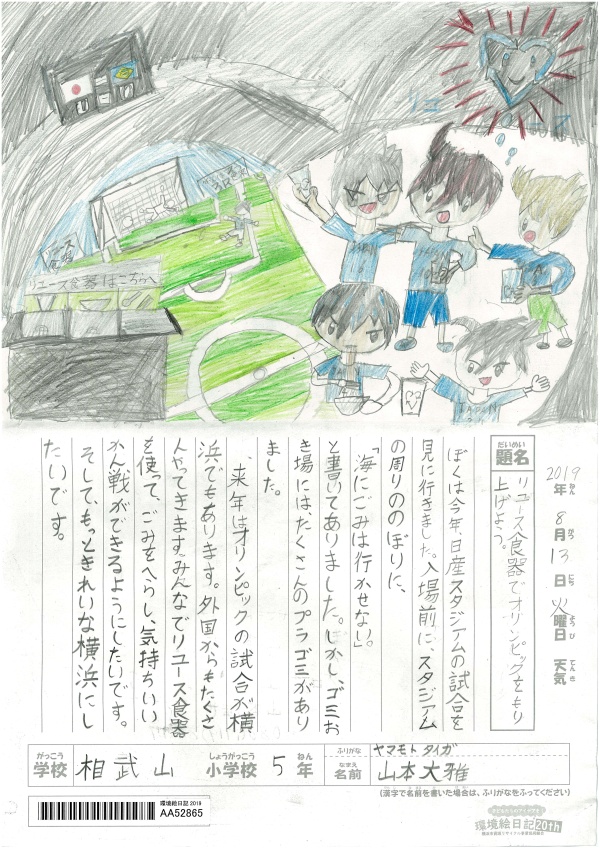 リユース食器はこちらへ
JAPAN
JAPAN
2019年 8月 13日 火曜日 天気
ねん がつ にち ようび てんき
だいめい
題名
リユース食器でオリンピックをもり
上げよう。
ぼくは今年、日産スタジアムの試合を
見に行きました。入場前に、スタジアム
の周りののぼりに、
「海にごみは行かせない」。
と書いてありました。しかし、ゴミお
き場には、たくさんのプラゴミがあり
ました。
来年はオリンピックの試合が横
浜でもあります。外国からもたくさ
人やってきます。みんなでリユース食器
を使って、ごみをへらし、気持ちいい
かん戦ができるようにしたいです。
そして、もっときれいな横浜にし
たいです。
がっこう しょうがっこう ねん
学校 相武山 小学校 5年
ふりがな ヤマモト タイガ
なまえ
名前 山本大雅
(漢字で名前を書いた場合は、ふりがなをふってください)
環境絵日記 2019
AA52865
環境絵日記20th